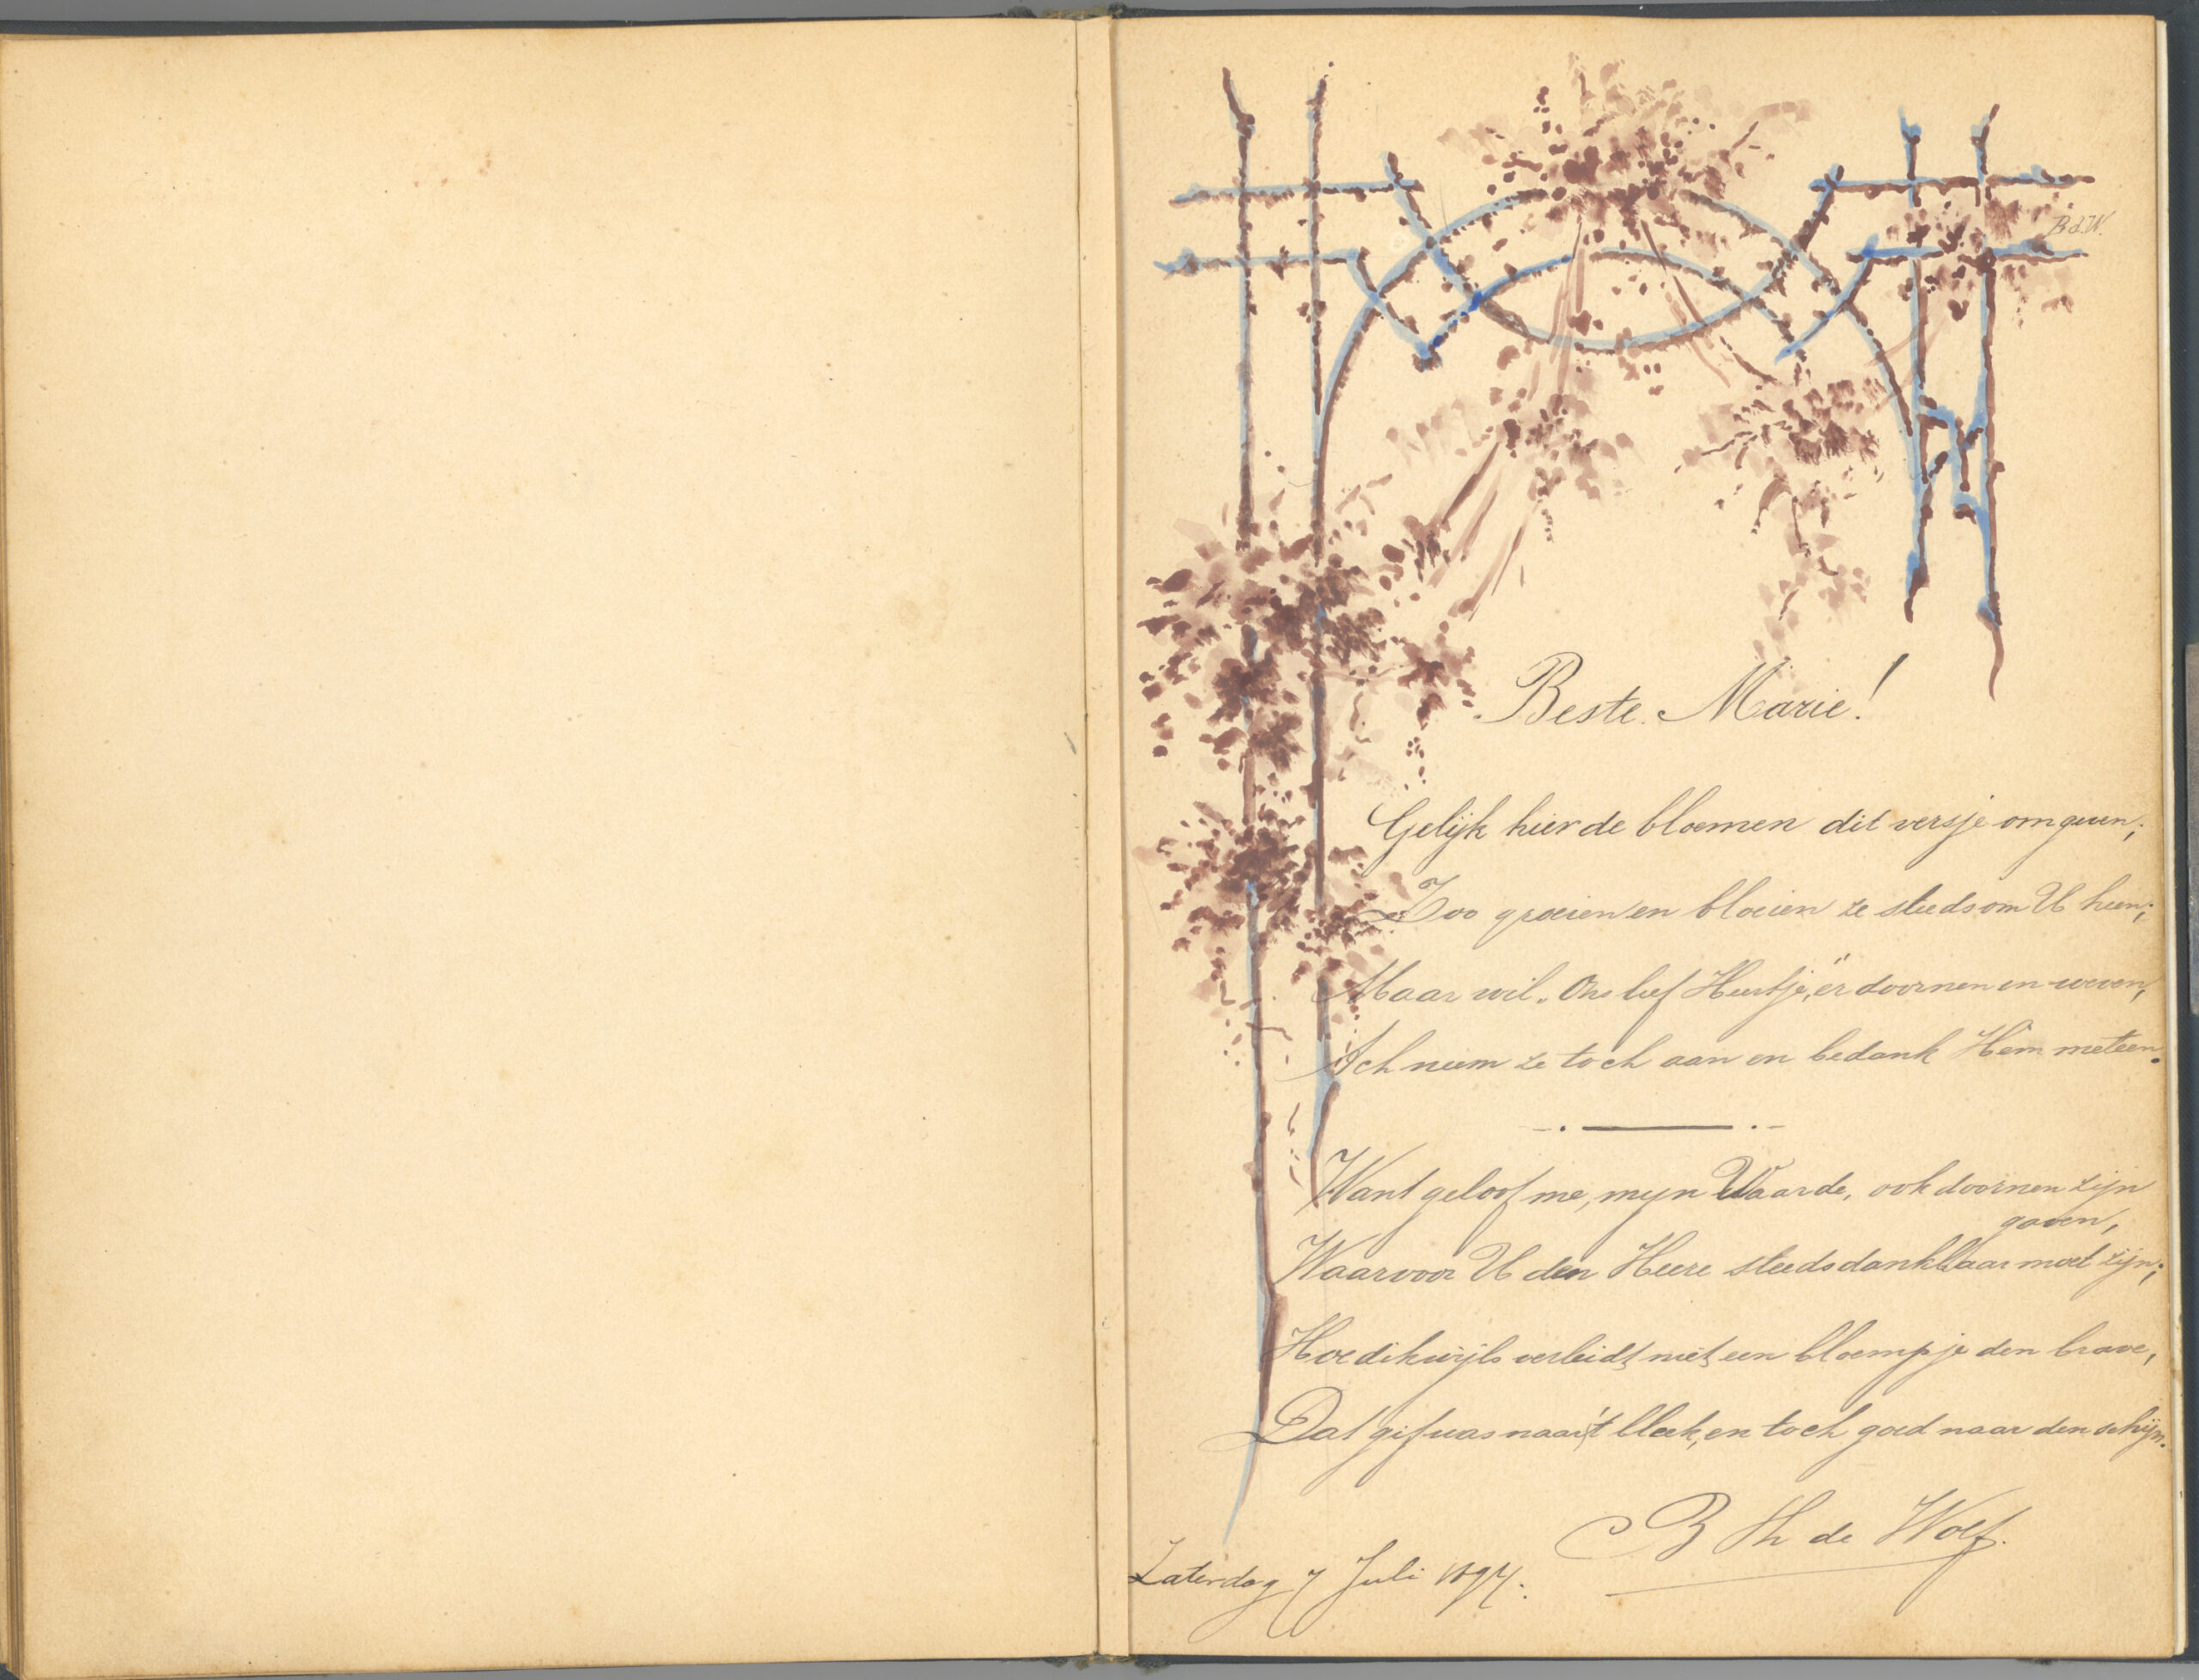 B d. W.
Beste Marie!
Gelijk hier de bloemen dit versje omgeven;
Zoo groeien en bloeien ze steeds om U heen;
Maar wil „Ons lief Heertje," er doornen in weven,
Ach neem ze toch aan en bedank Hem meteen.
Want geloof me, mijn Waarde, ook doornen zijn
gaven,
Waarvoor U den Heere steeds dankbaar moet zijn;
Hoe dikwijls verleidt niet een bloempje den brave,
Dat gif was naar 't bleek, en toch goed naar den schijn.
B Th de Wolf.
Zaterdag 7 Juli 1894.